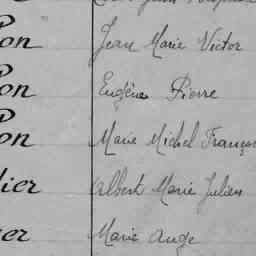 Pon Jean Marie Victor
Pon Eugène Pierre
Pon Marie Michel Françoi
lier Albert Marie Julien
er Marie Ange